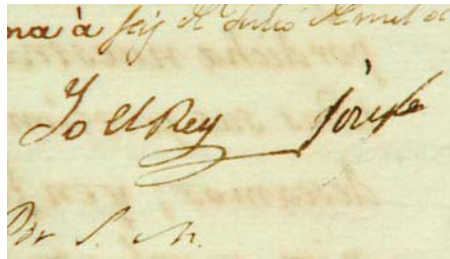 na à seis de Julio de mil
Yo el Rey Josef
Por S. M.